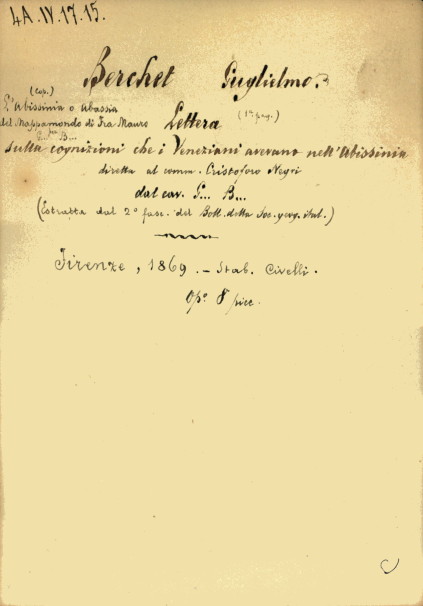 4A.IV.17.15.
Berchet Guglielmo.
(Cop.)
L'Abissinia o Abassia
del Mappamondo di Fra Mauro
G. B...
Lettera (1ª pag.)
sulla cognizioni che i Veneziani avevano nell'Abissinia
diretta al comm. Cristoforo Negri
dal cav. G... B...
(Estratta dal 2º fasc. del Boll. della Soc. geog. ital.)
Firenze, 1869. - Stab. Civelli.
Opº 8 picc.